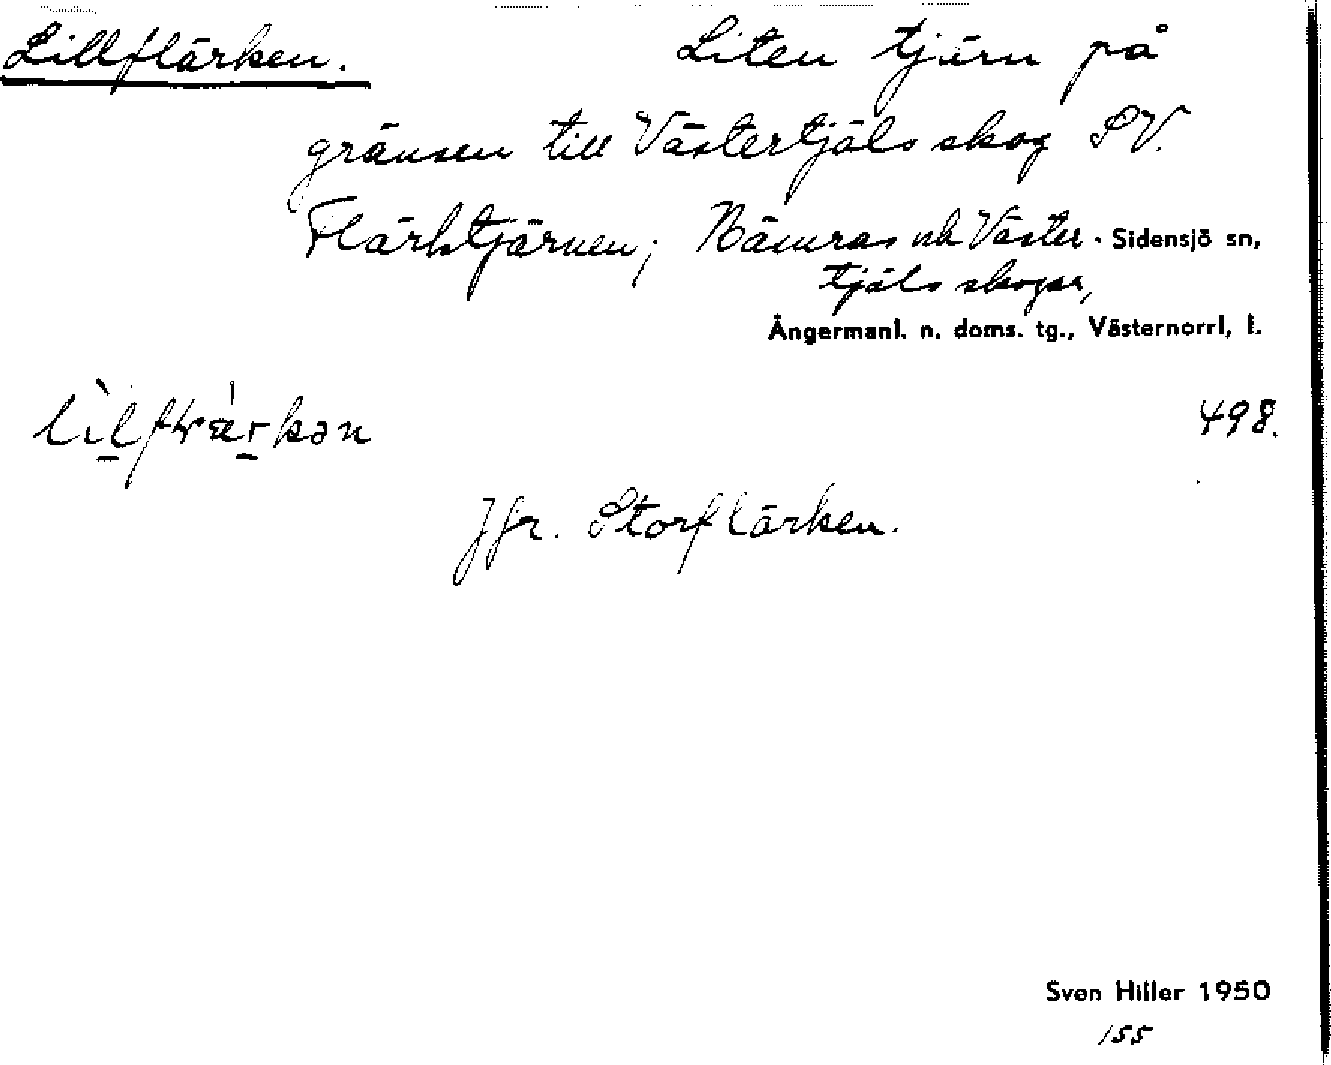 Lillflärken. Liten tjärn på
gränsen till Västertjäls skog SV.
Flärktjärnen; Nämras och Väster- Sidensjö sn,
tjäls skogar,
Ångermanl. n. doms. tg., Västernorrl, l.
498.
Jfr. Storflärken.
Sven Hiller 1950
155